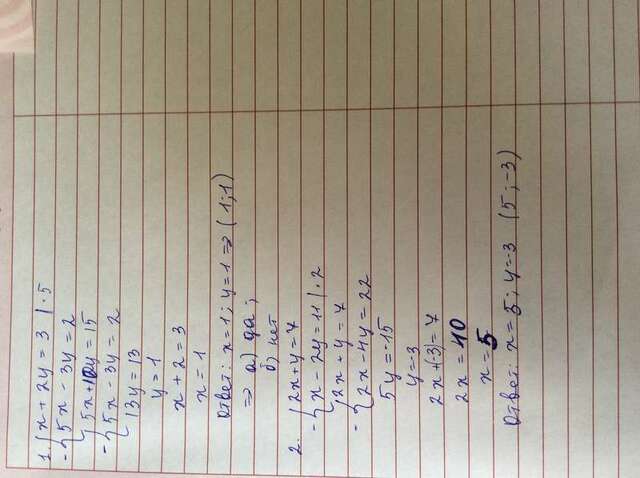 1. x + 2y = 3 | · 5
- 5x - 3y = 2
5x + 10y = 15
- 5x - 3y = 2
13y = 13
y = 1
x + 2 = 3
x = 1
Ответ: x = 1; y = 1 => (1;1)
=> а) да;
б) нет
2. 2x + y = 7
- x - 2y = 11 | · 2
2x + y = 7
- 2x - 4y = 22
5y = -15
y = -3
2x + (-3) = 7
2x = 10
x = 5
Ответ: x = 5; y = -3 (5; -3)